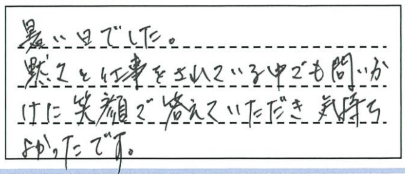 暑い日でした。
黙々と仕事をされている中でも問いか
けに笑顔で答えていただき気持ち
よかったです。